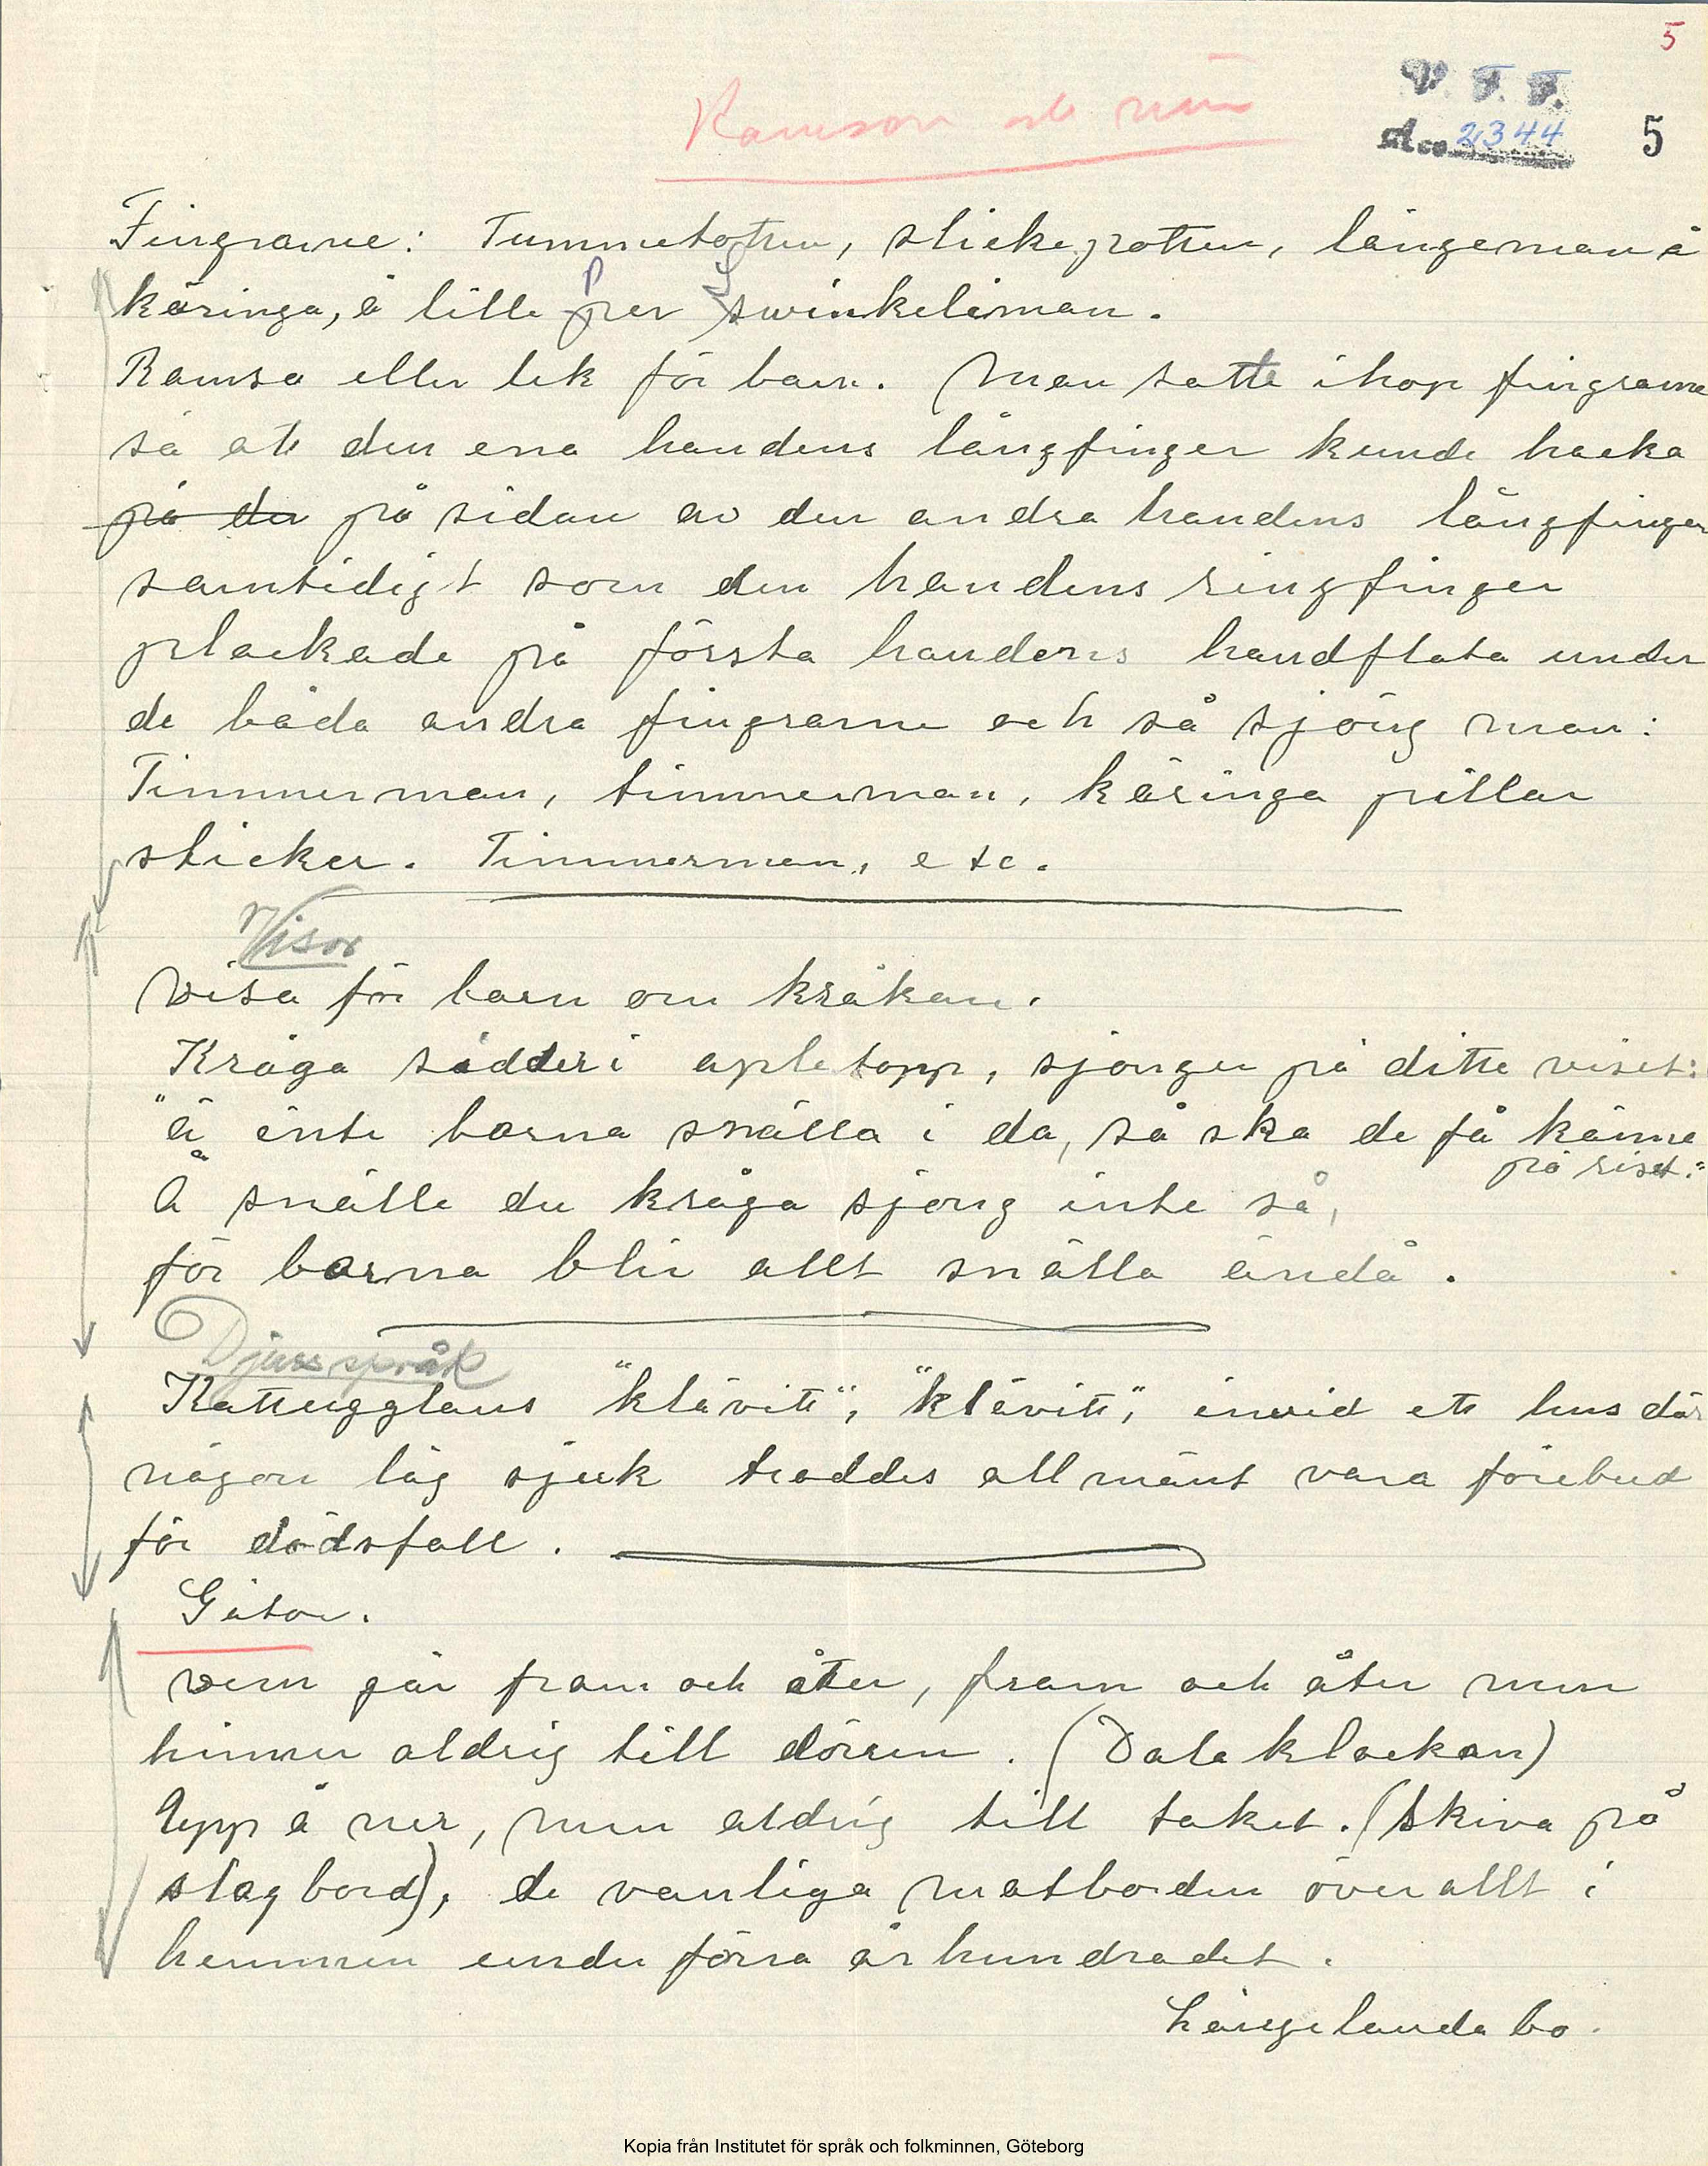 5
Ramsor och rim
V. F. F.
Acc. 2344
5
Fingrarne: Tummetotten, slickepotten, långeman å
käringa, å lille Per Swinkeliman.
Ramsa eller lek för barn. Man satte ihop fingrarne
så att den ena handens långfinger kunde hacka
på den på sidan av den andra handens långfinger
samtidigt som den handens ringfinger
plockade på första handens handflata under
de båda andra fingrarne och så sjöng man:
Timmerman, timmerman, käringa pillar
stickor. Timmerman, etc.
Visor
Visa för barn om kråkan.
Kråga sidder i apletopp, sjonger på ditte viset:
"Ä inte barna snälla i da, så ska de få känne
på riset."
Å snälle du kråga sjong inte så,
för barna blir allt snälla ändå.
Djurspråk
Kattugglans "klävitt", "klävitt", invid ett hus där
någon låg sjuk troddes allmänt vara förebud
för dödsfall.
Gåtor.
Vem går fram och åter, fram och åter men
hinner aldrig till dörren. (Dalaklockan)
Upp å ner, men aldrig till taket. (Skiva på
slagbord), de vanliga matborden överallt i
hemmen under förra århundradet.
Långelanda bo.
Kopia från Institutet för språk och folkminnen, Göteborg